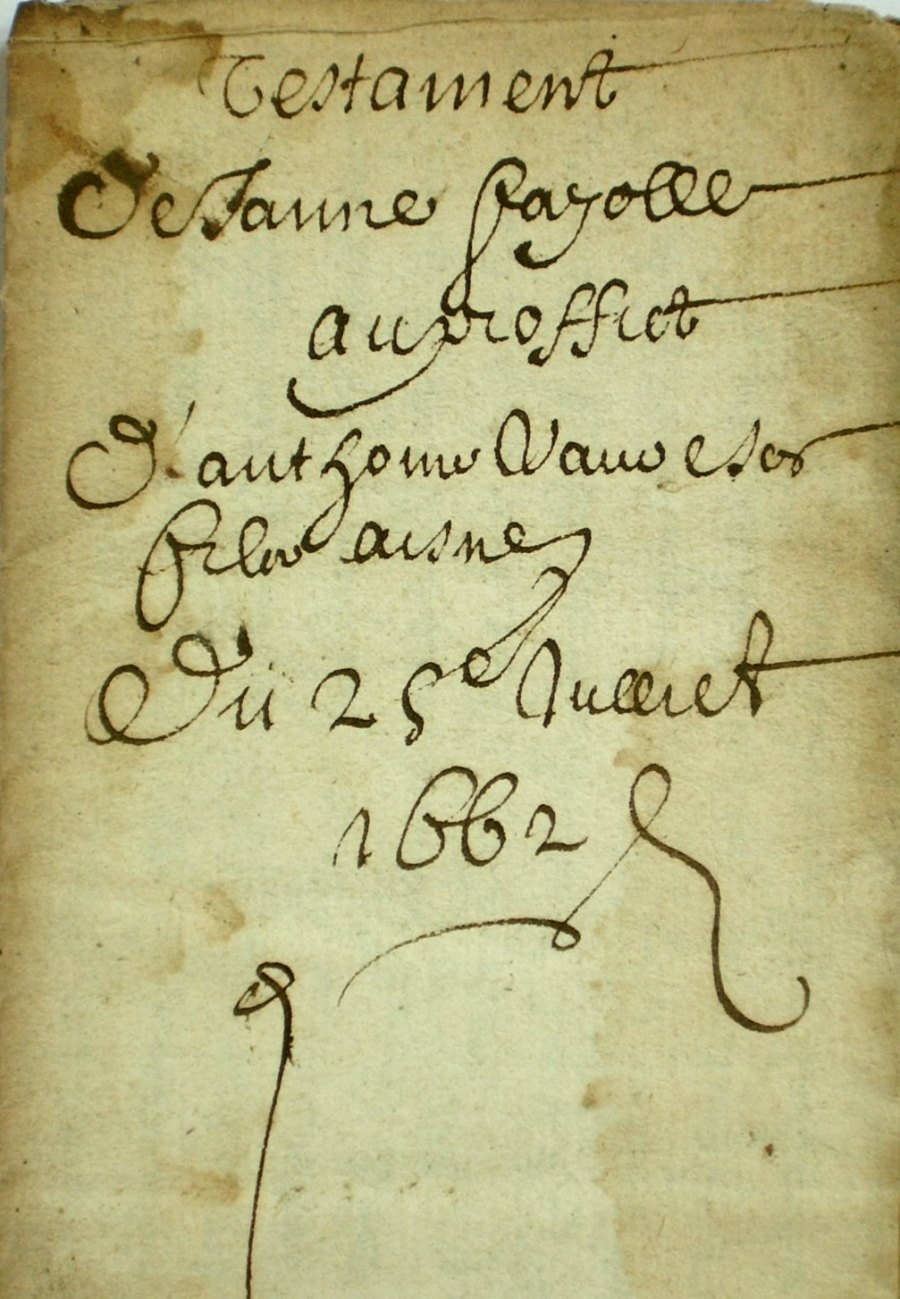 Testament
De Janne Fayolle
au proffict
d'anthoine
filz aisne
Du 25e Juilliet
1662